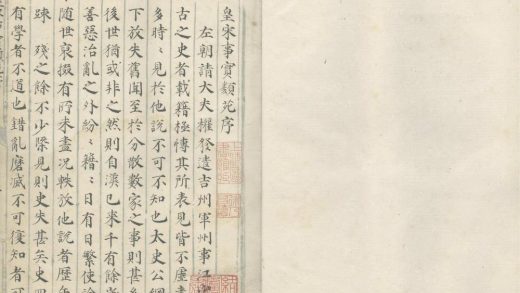 皇宋事實類苑序
左朝請大夫權發遣吉州軍州事江
古之史者載籍極博其所表見皆不虛書
多時時見於他說不可不知也太史公網
下放失舊聞至於分散數家之事則甚
後世猶或非之然則自漢已來千有餘歲
善惡治亂之外紛〻籍〻日有日繁使
隨世裒掇有所未盡况軼放他說者歷年
踈殘之餘不少槩見則史失甚矣史
有學者不道也錯亂磨滅不可復知者可